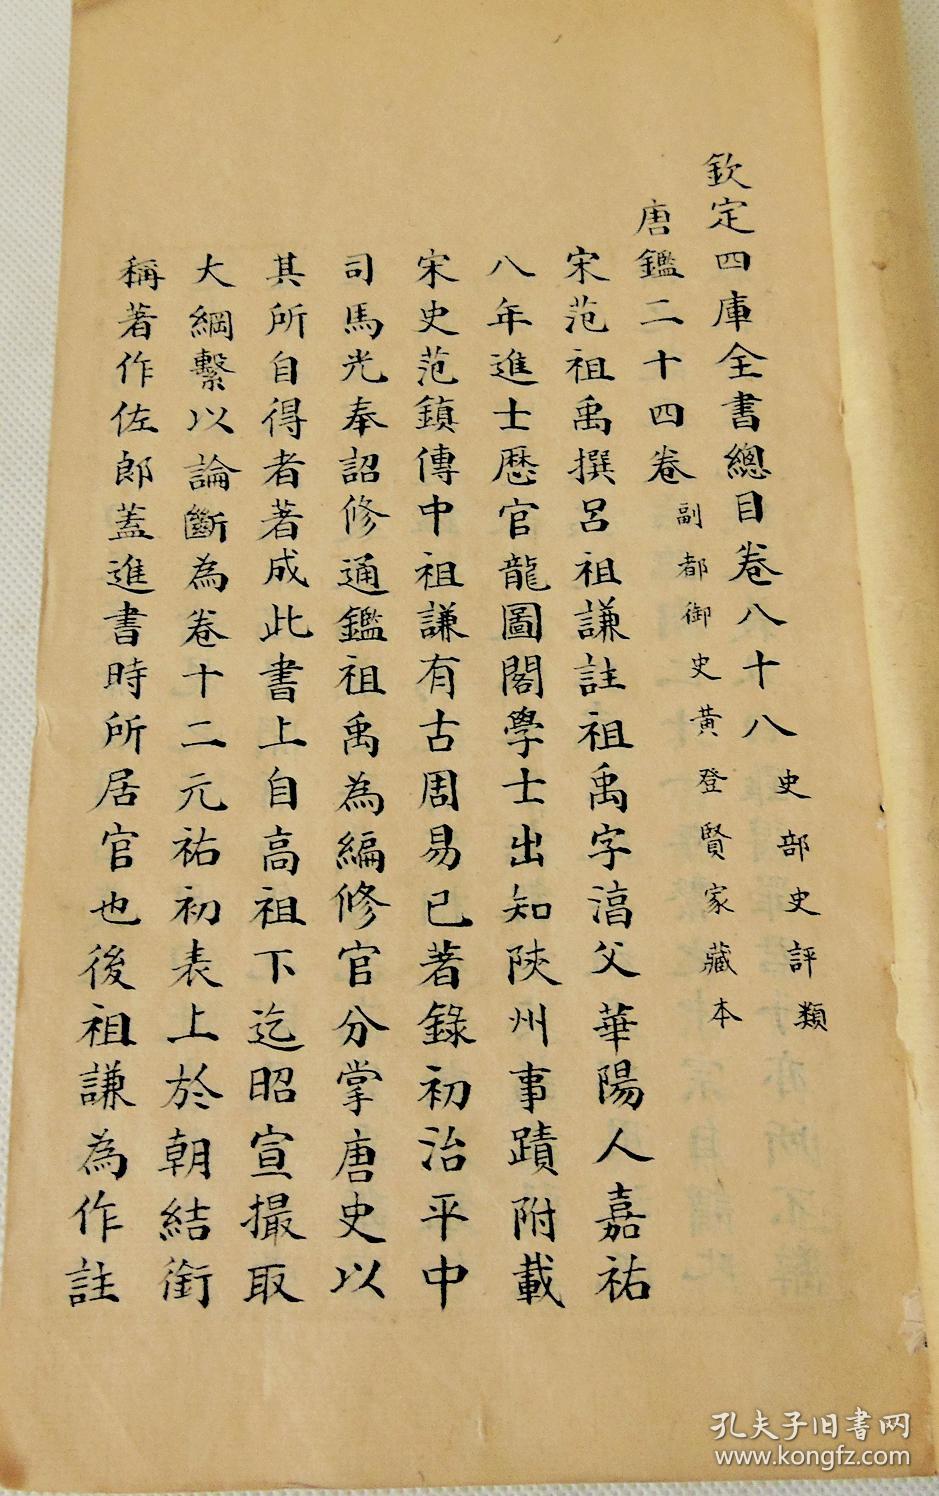 欽定四庫全書總目卷八十八 史部史評類
唐鑑二十四卷 副都御史黃登賢家藏本
宋范祖禹撰呂祖謙註祖禹字淳父華陽人嘉祐
八年進士歷官龍圖閣學士出知陝州事蹟附載
宋史范鎮傳中祖謙有古周易已著錄初治平中
司馬光奉詔修通鑑祖禹為編修官分掌唐史以
其所自得者著成此書上自高祖下迄昭宣撮取
大綱繫以論斷為卷十二元祐初表上於朝結銜
稱著作佐郎蓋進書時所居官也後祖謙為作註
孔夫子旧書网
www.kongfz.com